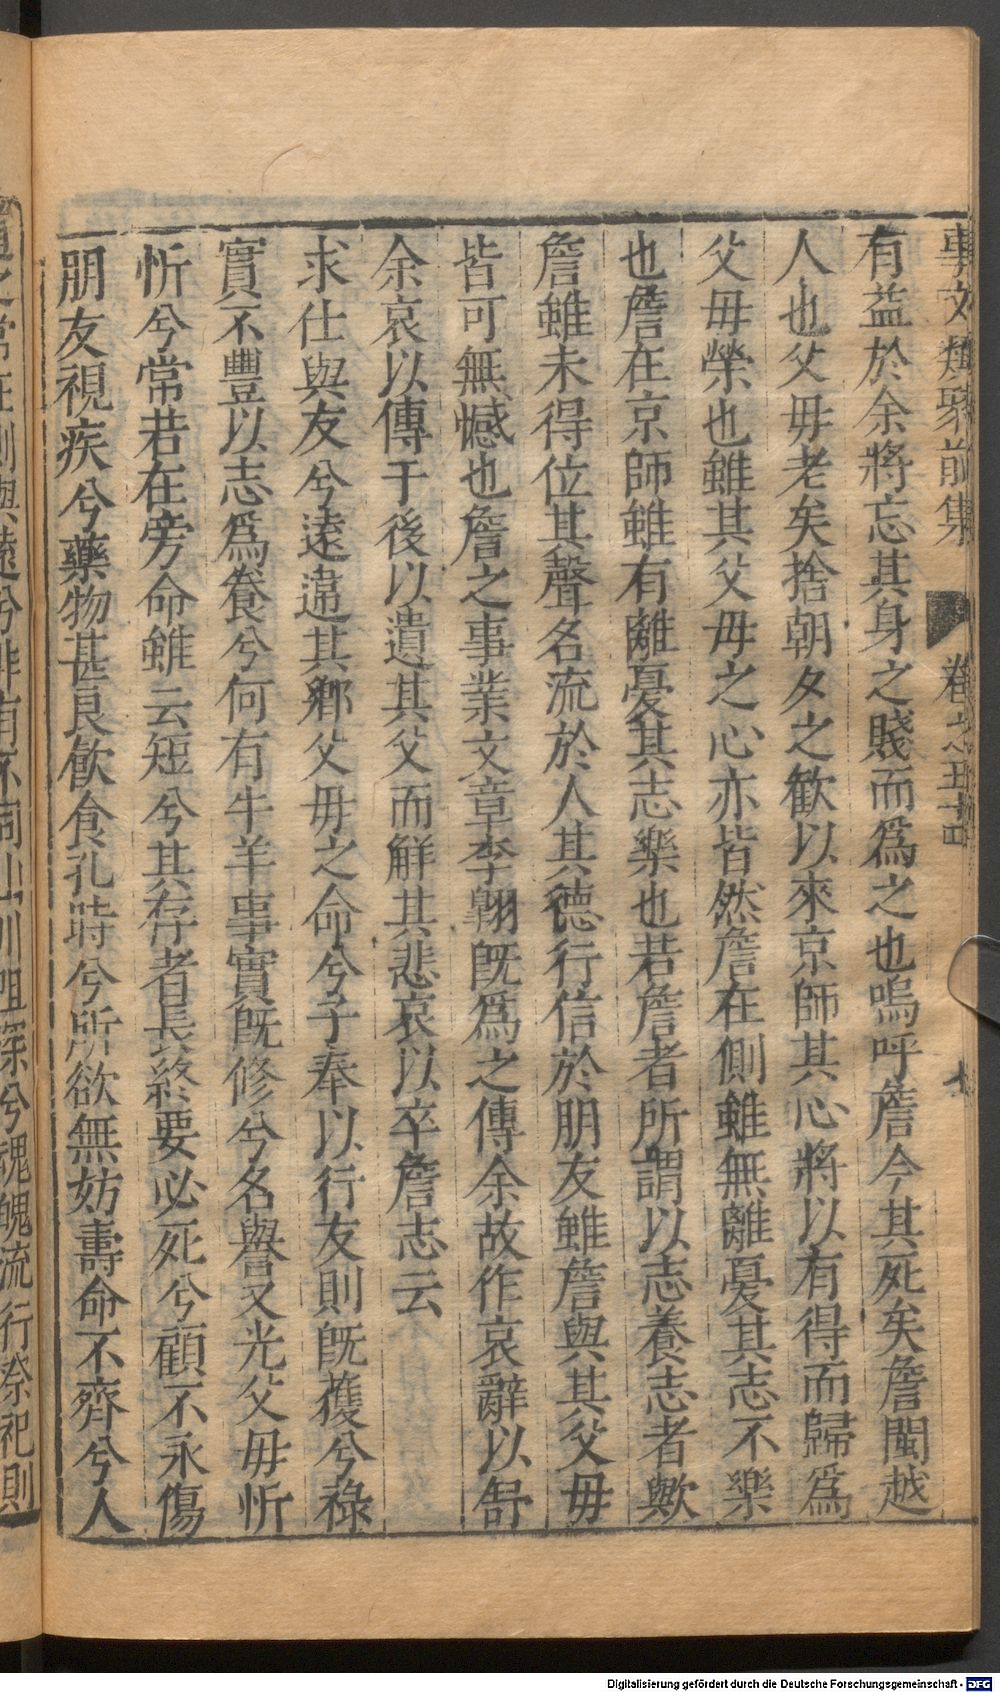 事文類聚前集 卷之五十四 七
有益於余將忘其身之賤而爲之也嗚呼詹今其死矣詹閩越
人也父毋老矣捨朝夕之歡以來京師其心將以有得而歸爲
父毋榮也雖其父毋之心亦皆然詹在側雖無離憂其志不樂
也詹在京師雖有離憂其志樂也若詹者所謂以志養志者歟
詹雖未得位其聲名流於人其德行信於朋友雖詹與其父毋
皆可無憾也詹之事業文章李翱旣爲之傳余故作哀辭以舒
余哀以傳于後以遺其父而觧其悲哀以卒詹志云
求仕與友兮遠違其鄕父毋之命兮子奉以行友則旣獲兮祿
實不豐以志爲養兮何有牛羊事實旣修兮名譽又光父毋忻
忻兮常若在旁命雖云短兮其存者長終要必死兮顧不永傷
朋友視疾兮藥物甚良飮食孔時兮所欲無妨壽命不齊兮人
道之常在側與遠兮非有不同山川阻深兮魂魄流行祭祀則
Digitalisierung gefördert durch die Deutsche Forschungsgemeinschaft - DFG